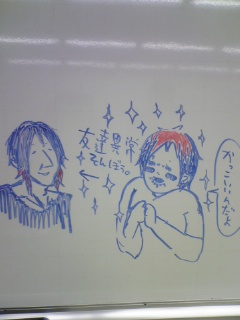 友達異常
そんぼう。
かっこいいのだよ